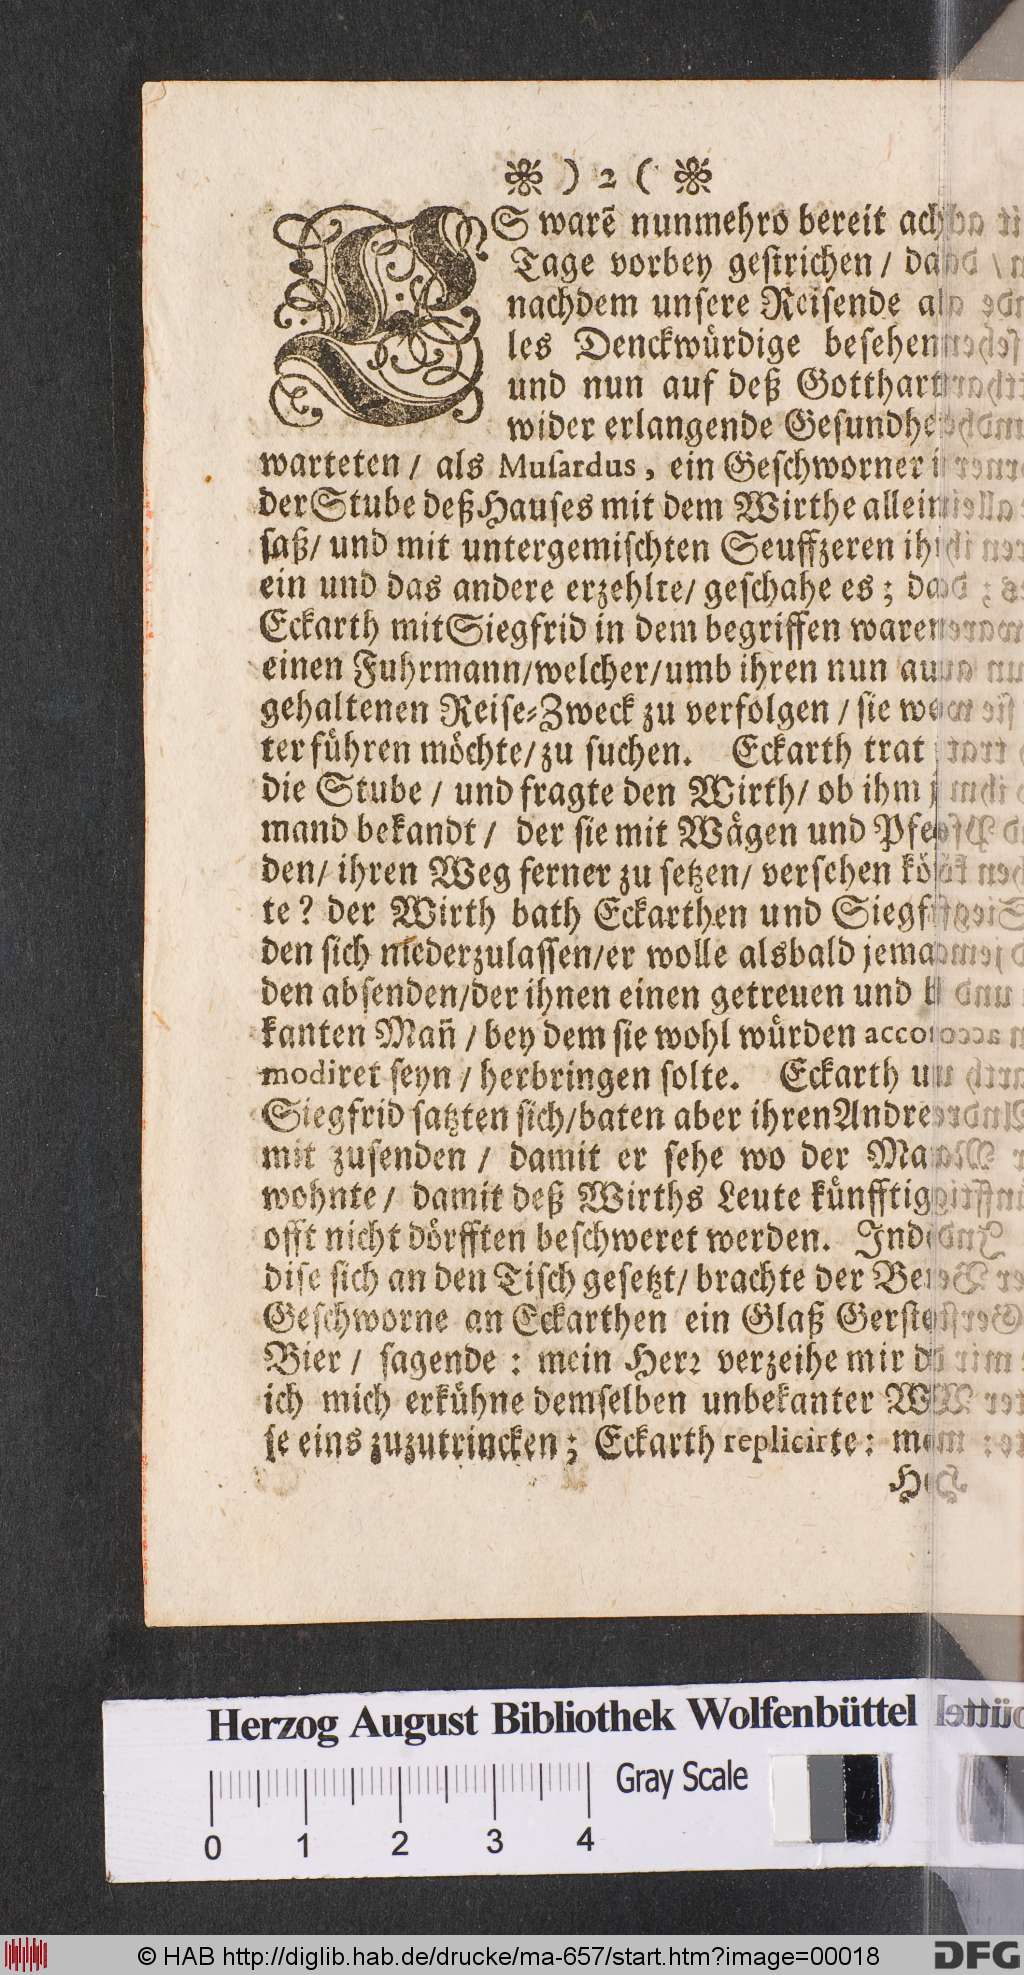 ❀ ) 2 ( ❀
ES warē nunmehro bereit ach
Tage vorbey gestrichen / da
nachdem unsere Reisende al
les Denckwürdige besehen
und nun auf deß Gotthart
wider erlangende Gesundhe
warteten / als Musardus, ein Geschworner i
der Stube deß Hauses mit dem Wirthe allein
saß / und mit untergemischten Seuffzeren ih
ein und das andere erzehlte / geschahe es ; da
Eckarth mit Siegfrid in dem begriffen waren
einen Fuhrmann / welcher / umb ihren nun au
gehaltenen Reise-Zweck zu verfolgen / sie we
ter führen möchte / zu suchen. Eckarth trat
die Stube / und fragte den Wirth / ob ihm j
mand bekandt / der sie mit Wägen und Pfe
den / ihren Weg ferner zu setzen / versehen kö
te ? der Wirth bath Eckarthen und Siegf
den sich niederzulassen / er wolle alsbald jema
den absenden / der ihnen einen getreuen und b
kanten Mañ / bey dem sie wohl würden acco
modiret seyn / herbringen solte. Eckarth u
Siegfrid satzten sich / baten aber ihren Andre
mit zusenden / damit er sehe wo der Ma
wohnte / damit deß Wirths Leute künfftig
offt nicht dörfften beschweret werden. Ind
dise sich an den Tisch gesetzt / brachte der Be
Geschworne an Eckarthen ein Glaß Gerste
Bier / sagende : mein Herr verzeihe mir d
ich mich erkühne demselben unbekanter W
se eins zuzutrincken ; Eckarth replicirte : me
H
Herzog August Bibliothek Wolfenbüttel
Gray Scale
0 1 2 3 4
© HAB http://diglib.hab.de/drucke/ma-657/start.htm?image=00018
DFG